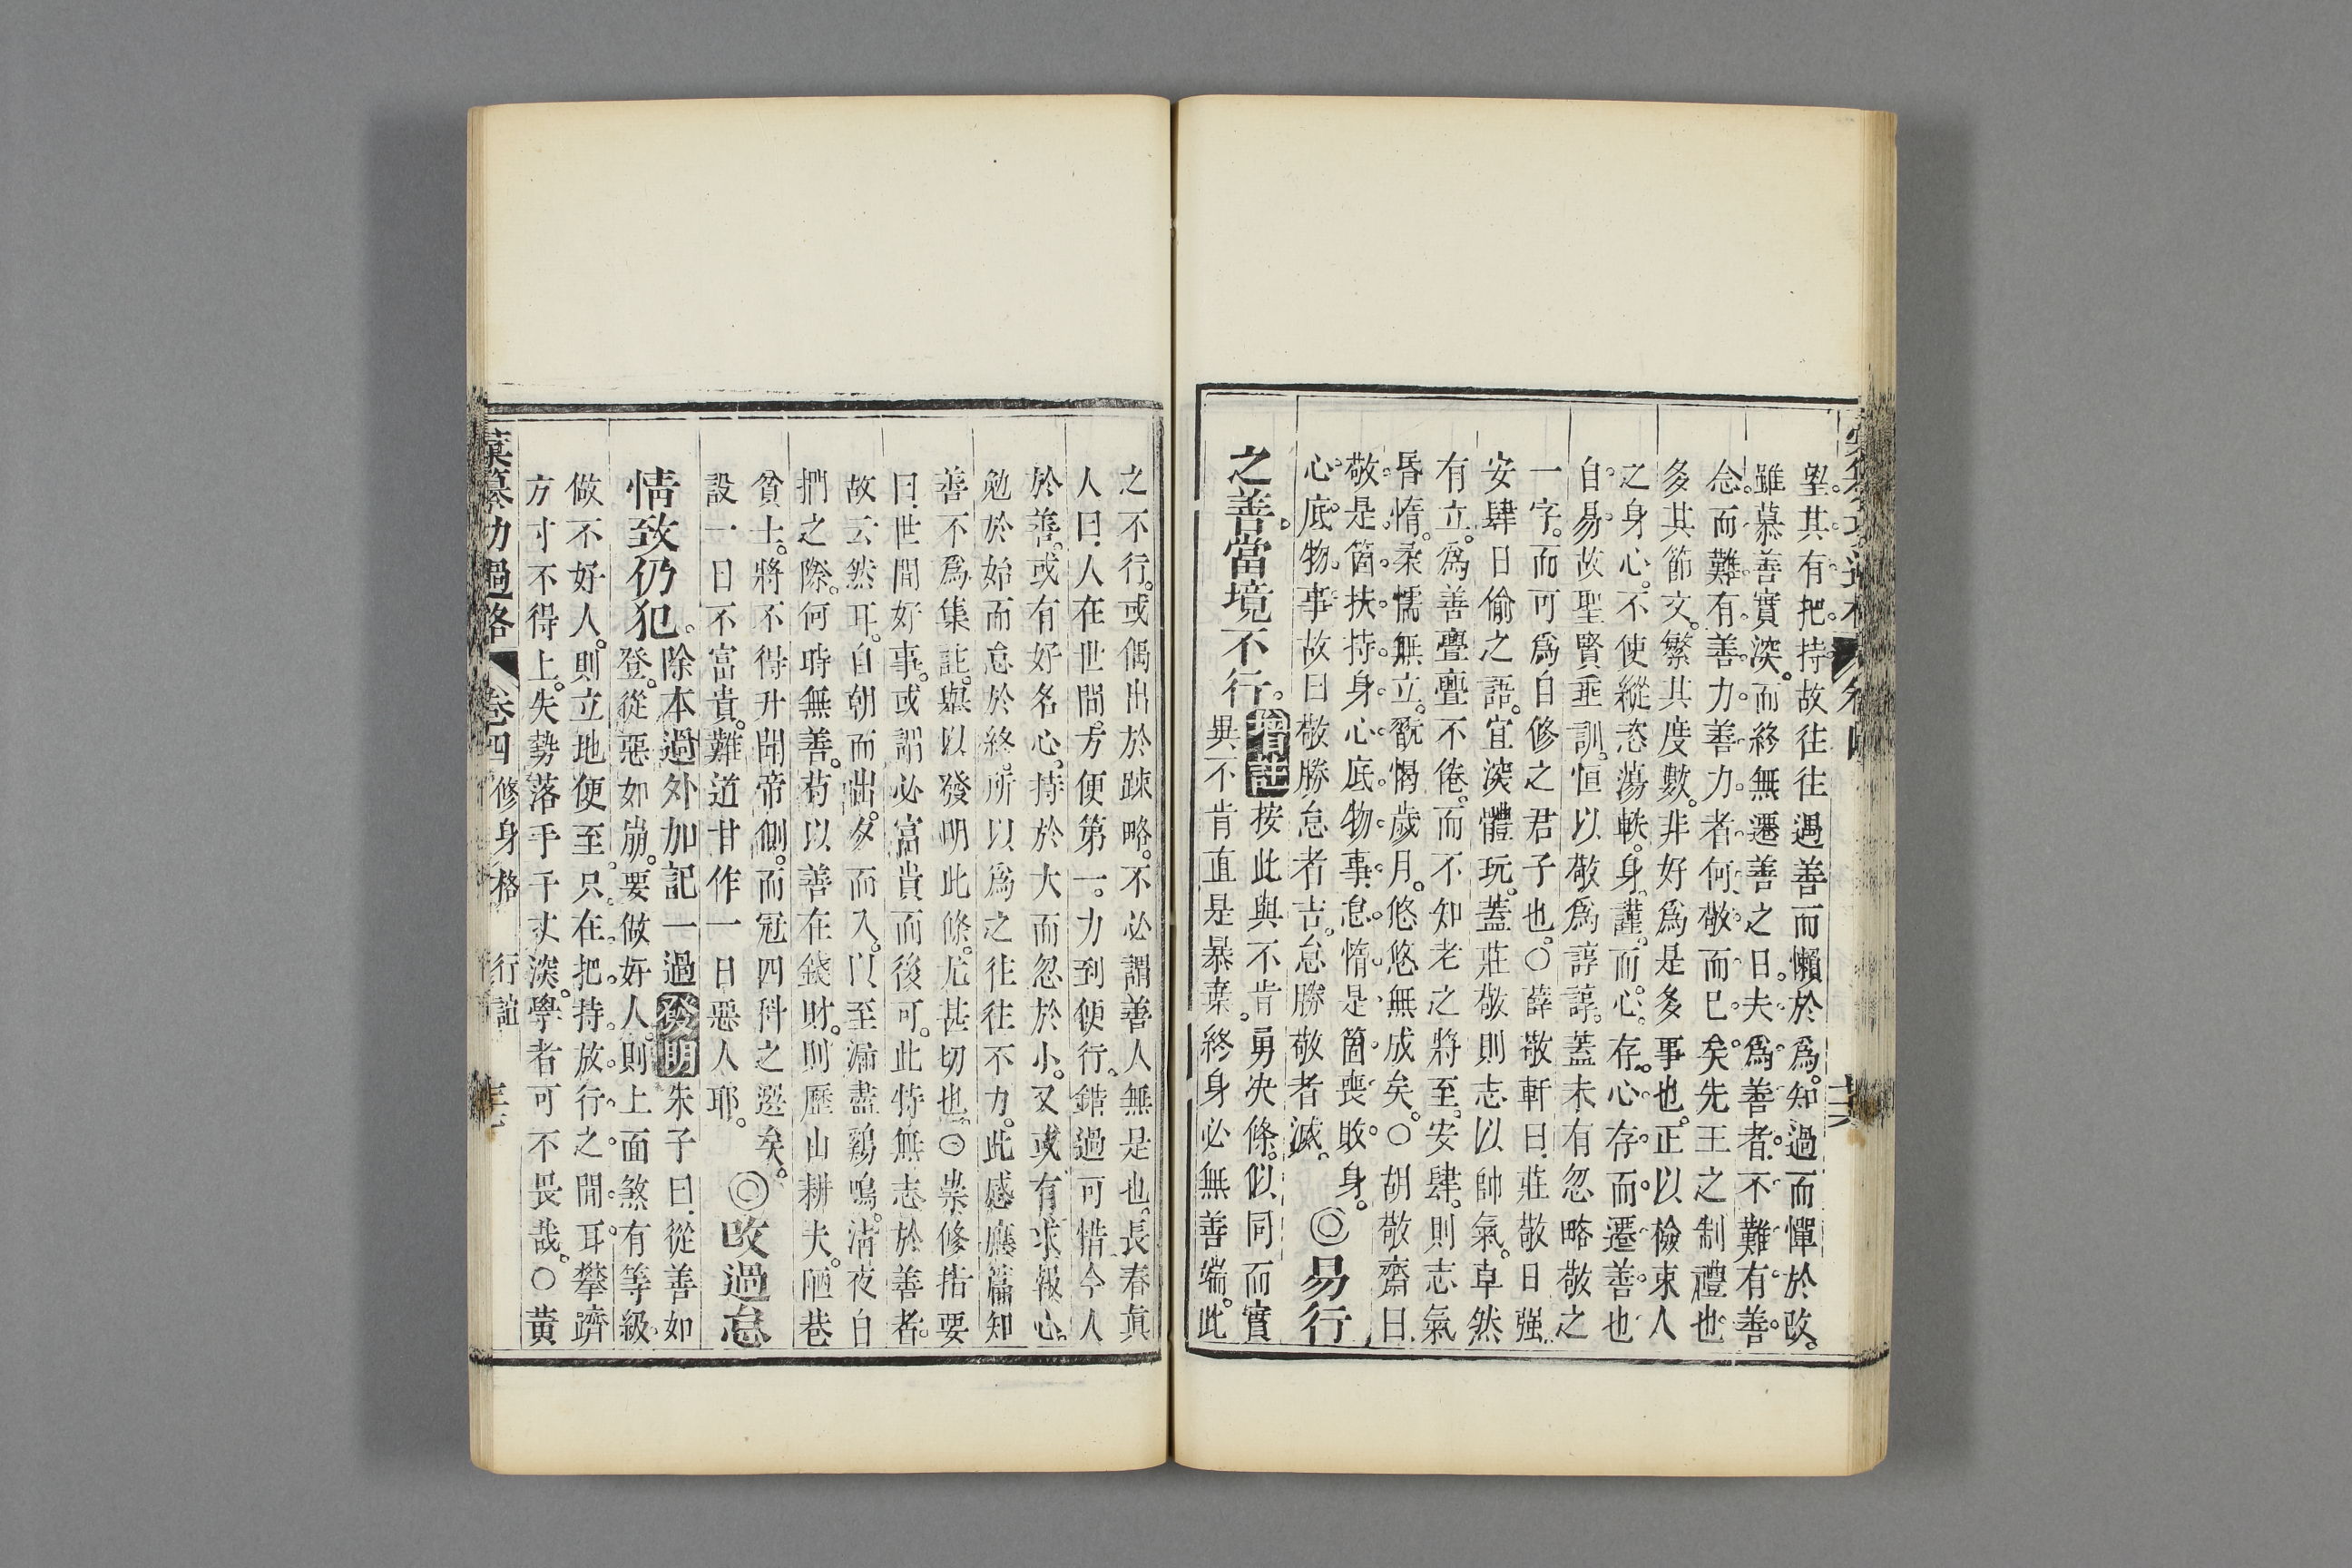 望其有把持故往往遇善而懶於爲知過而憚於改
雖慕善實深而終無遷善之日夫爲善者不難有善
念而難有善力善力者何敬而已矣先王之制禮也
多其節文繁其度數非好爲是多事也正以檢束人
之身心不使縱恣蕩軼身謹而心存心存而遷善也
自易故聖賢垂訓恒以敬爲諄諄蓋未有忽略敬之
一字而可爲自修之君子也○薛敬軒曰莊敬日强
安肆日偷之語宜深體玩蓋莊敬則志以帥氣卓然
有立爲善亹亹不倦而不知老之將至安肆則志氣
昏惰柔懦無立翫愒歲月悠悠無成矣○胡敬齋曰
敬是箇扶持身心底物事怠惰是箇喪敗身
心底物事故曰敬勝怠者吉怠勝敬者滅◎易行
之善當境不行增註按此與不肯勇决條似同而實
異不肯直是暴棄終身必無善端此
之不行或偶出於踈略不必謂善人無是也長春眞
人曰人在世間方便第一力到便行錯過可惜今人
於善或有好名心持於大而忽於小又或有求報心
勉於始而怠於終所以爲之往往不力此感應篇知
善不爲集註與以發明此條尤甚切也○彚修指要
曰世間好事或謂必富貴而後可此特無志於善者
故云然耳自朝而出多而入以至漏盡鷄鳴淸夜白
捫之際何時無善苟以善在錢財則歷山耕夫陋巷
貧士將不得升聞帝側而冠四科之選矣
設一日不富貴難道甘作一日惡人耶◎改過怠
情致仍犯除本過外加記一過發明朱子曰從善如
登從惡如崩要做好人則上面煞有等級
做不好人則立地便至只在把持放行之間耳攀躋
方寸不得上失勢落手千丈深學者可不畏哉○黃
彙纂功過格 卷四 修身格 行誼